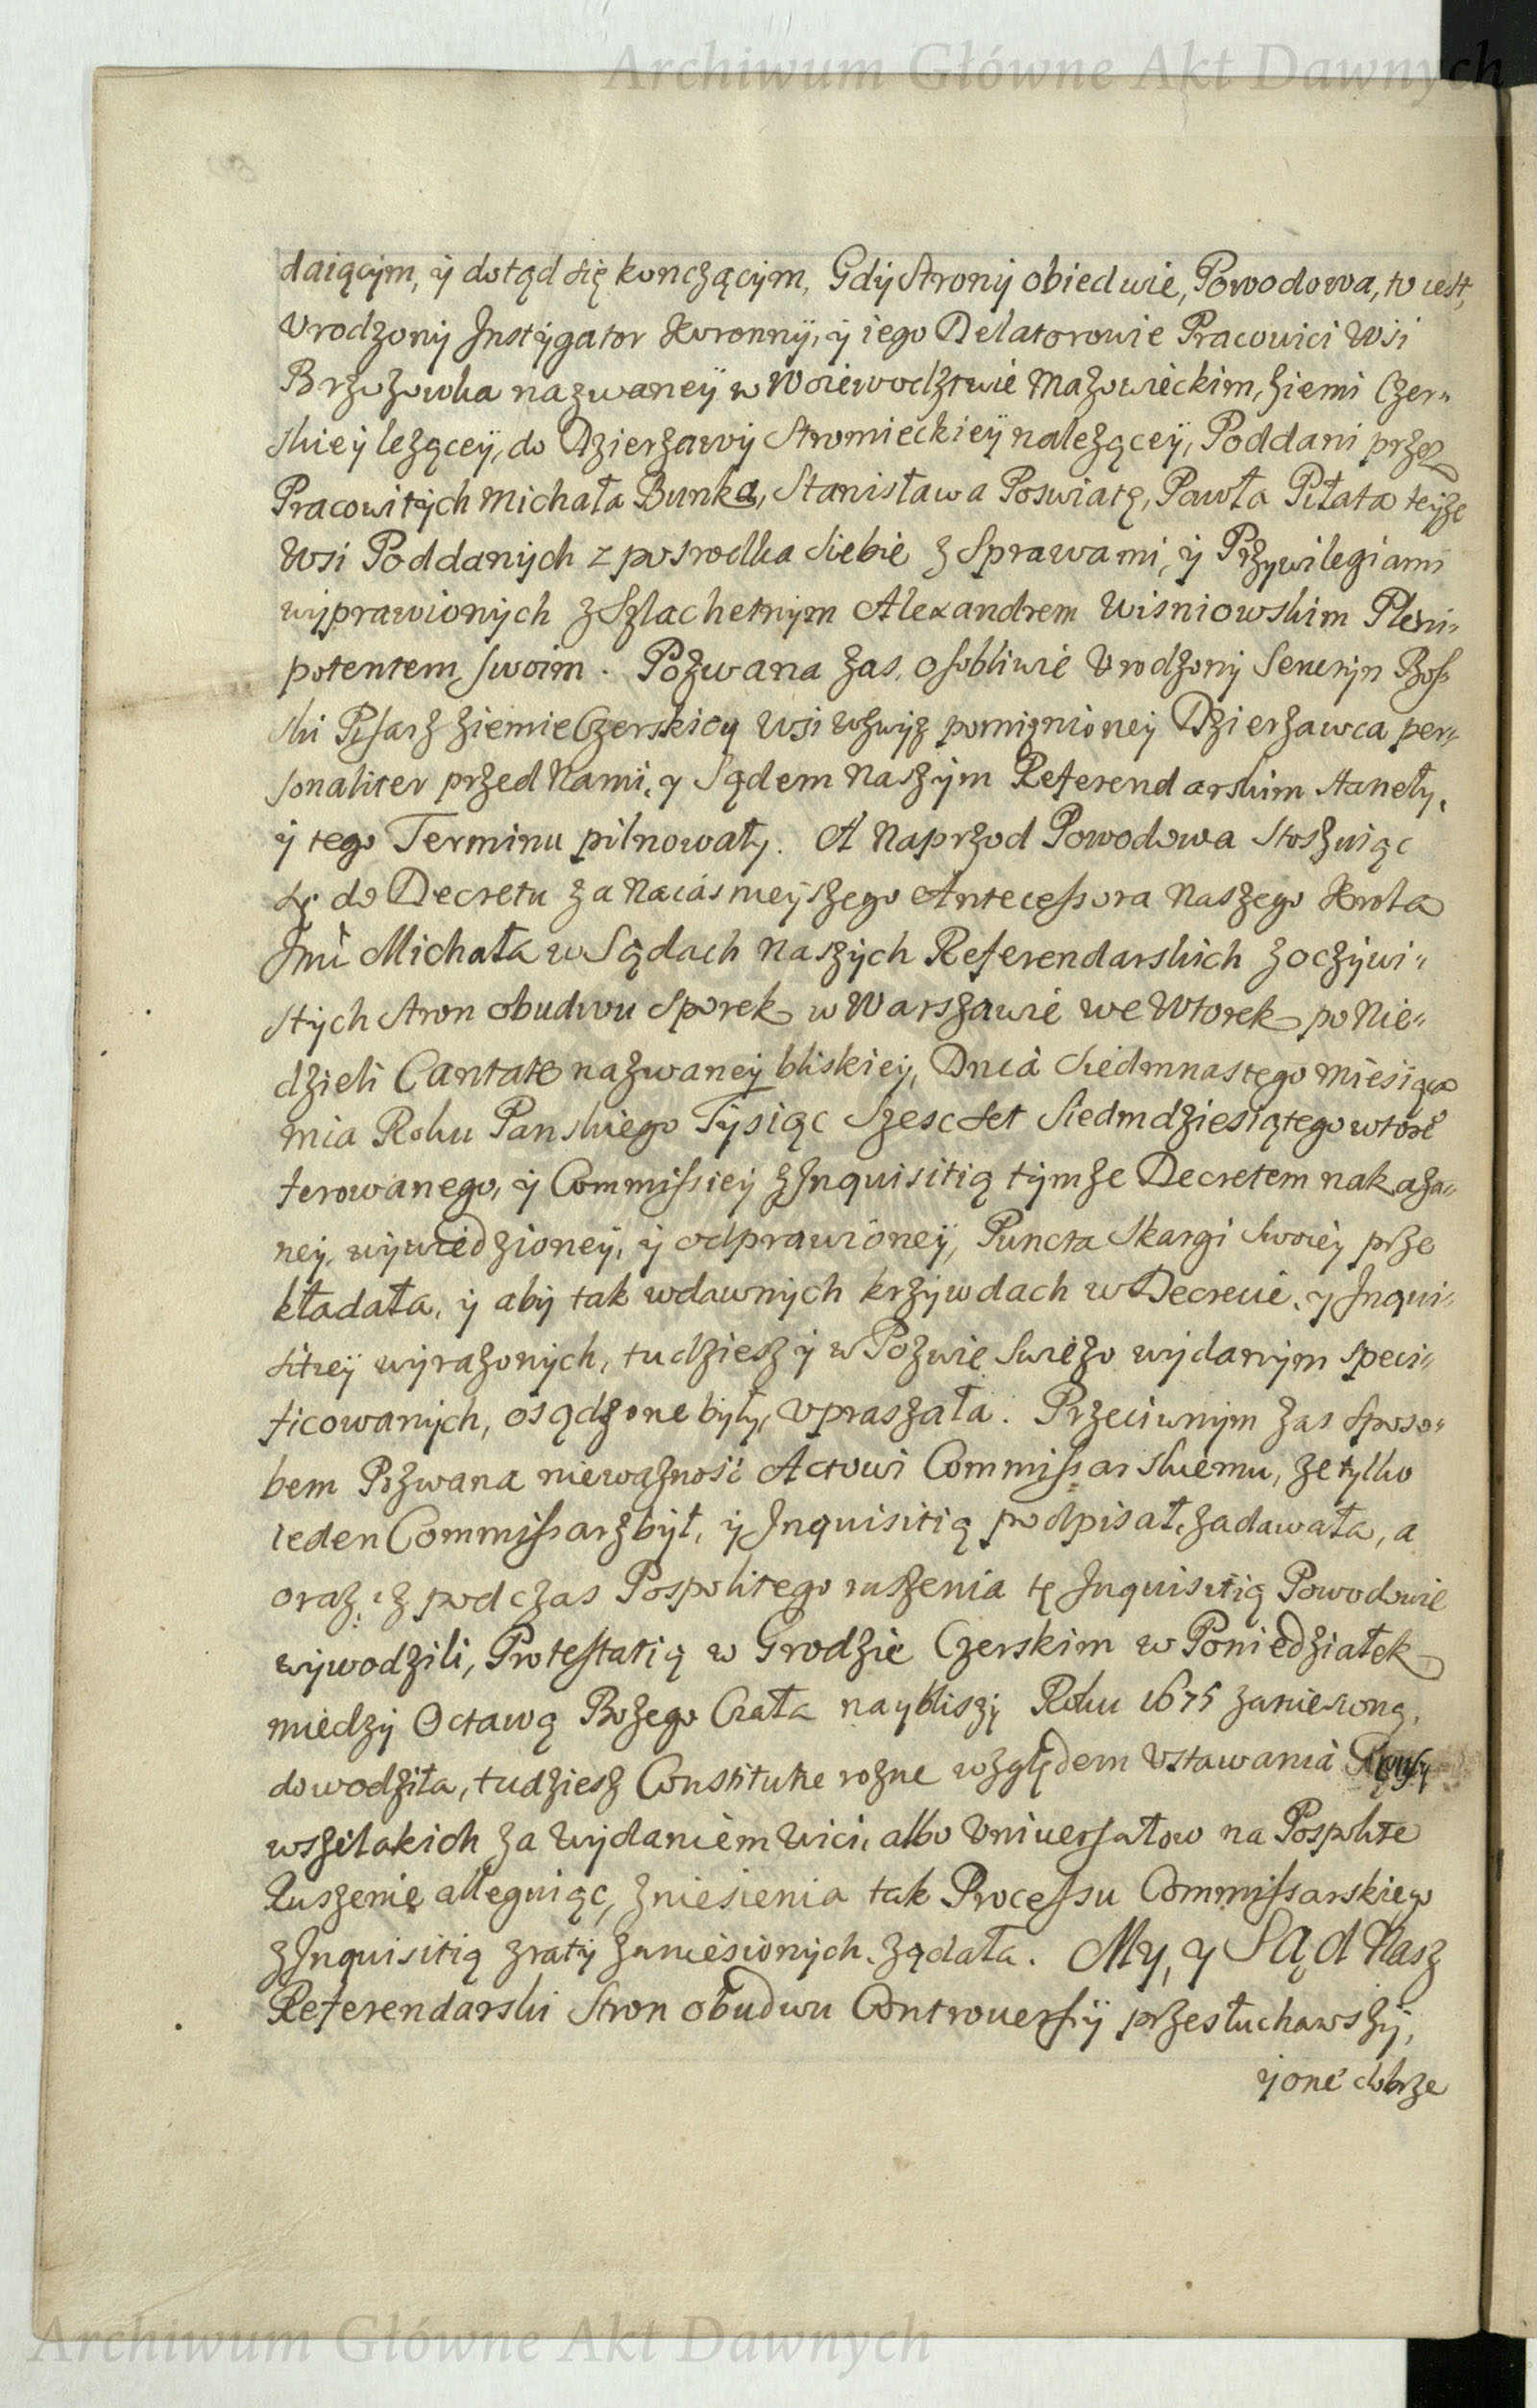 Archiwum Główne Akt Dawnych
daiącym, ÿ dotąd się konczącym, Gdÿ Stronÿ obiedwie, Powodowa, to iest,
Vrodzonÿ Instÿgator Koronnÿ, ÿ iego Delatorowie Pracowici Wsi
Brzozowka nazwaneÿ w Woiewodztwie Mazowieckim, Ziemi Czer„
skieÿ leżąceÿ, do Dzierzawÿ Stromieckieÿ należąceÿ, Poddani przez
Pracowitÿch Michała Bunka, Stanisława Poswiatę, Pawła Piłata teÿze
Wsi Poddanÿch z posrodka siebie z Sprawami, ÿ Przywilegiami
wÿprawionÿch z Szlachetnÿm Alexandrem Wisniowskim Pleni„
potentem swoim. Pozwana zas, osobliwie Vrodzonÿ Seweryn Rzos„
ski Pisarz Ziemie Czerskieÿ Wsi wzwÿz pomienioneÿ Dzierzawca per„
sonaliter przed Nami, y Sądem Naszÿm Referendarskim stanełÿ,
ÿ tego Terminu pilnowałÿ. A Naprzod Powodowa Stosuiąc
się do Decretu za Naiasnieÿszego Antecessora Naszego Krola
Jmci Michała w Sądach Naszÿch Referendarskich z oczÿwi„
stÿch stron obudwu Sporek w Warszawie we Wtorek po Nie„
dzieli Cantate nazwaneÿ bliskieÿ, Dnia siedmnastego miesiąca
mia Roku Panskiego Tÿsiąc Szescset Siedmdziesiątego wtore
ferowanego, ÿ Commissieÿ z Inquisitią tÿmze Decretem nakaza„
neÿ, wÿwiedzioneÿ, ÿ odprawioneÿ, Puncta Skargi swoieÿ prze
kładała, ÿ abÿ tak w dawnÿch krzÿwdach w Decrecie, y Inqui„
sitieÿ wÿrazonÿch, tudziesz ÿ w Pozwie swiezo wÿdanÿm speci„
ficowanÿch, osądzone bÿłÿ, vpraszała. Przeciwnÿm zas sposo„
bem Pozwana nieważność Actowi Commissarskiemu, ze tylko
ieden Commissarz bÿł, ÿ Inquisitią podpisał, zadawała, a
oraz, iz podczas Pospolitego ruszenia tę Inquisitią Powodowie
wÿwodzili, Protestatią w Grodzie Czerskim w Poniedziałek
miedzÿ Octawą Bożego Ciała naybliszÿ Roku 1675 zaniesioną,
dowodziła, tudziesz Constitutie rozne względem Vstawania
wszelakich za Wÿdaniem Wici, albo Vniwersałow na Pospolite
Ruszenie alleguiąc, zniesienia tak Processu Commissarskiego
z Inquisitią zratÿ zaniesionÿch, żądała. My, y SĄd Nasz
Referendarski Stron obudwu Controuersÿ przesłuchawszÿ,
ÿ one dobrze
Archiwum Główne Akt Dawnych